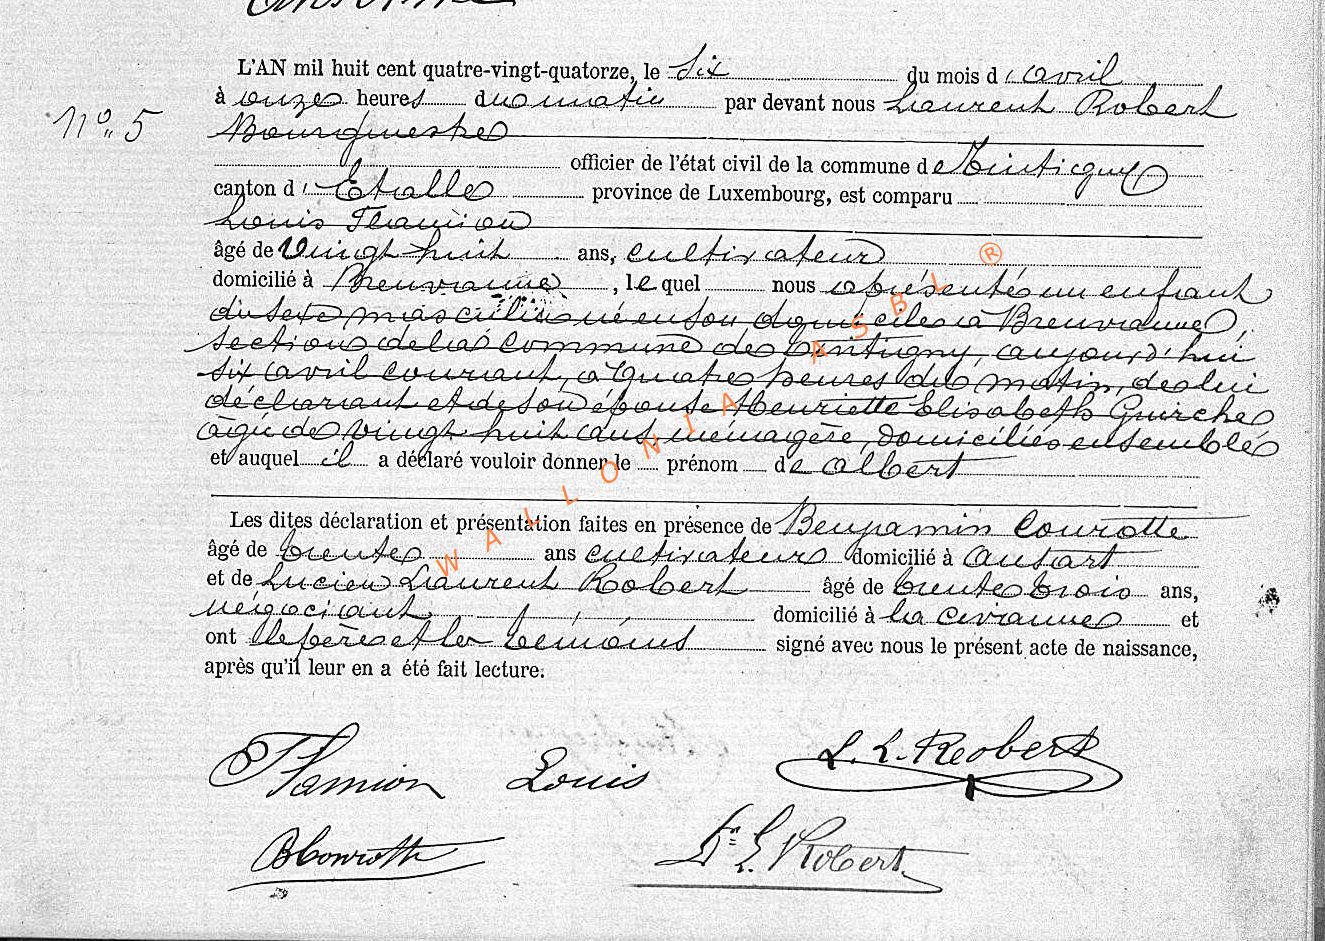 L'AN mil huit cent quatre-vingt-quatorze, le six du mois d'avril
N° 5
à onze heures du matin par devant nous Laurent Robert
Bourguestre
officier de l'état civil de la commune de Tintigny
canton d'Etalle province de Luxembourg, est comparu
Louis Flamion
âgé de Vingt huit ans, cultivateur
domicilié à Breuvanne, lequel nous a présenté un enfant
du sexe masculin né en son domicile à Breuvanne,
section de la commune de Tintigny, aujourd'hui
six avril courant, à quatre heures du matin, de lui
déclarant et de son épouse Henriette Elisabeth Guirche
âgée de vingt huit ans, ménagère, domiciliés ensemble
et auquel il a déclaré vouloir donner le prénom de albert
Les dites déclaration et présentation faites en présence de Benjamin Courotte
âgé de trente ans cultivateur domicilié à ansart
et de Lucien Laurent Robert âgé de trente trois ans,
négociant domicilié à la civanne et
ont le père et les témoins signé avec nous le présent acte de naissance,
après qu'il leur en a été fait lecture.
Flamion Louis
L. L. Robert
B Courotte
L. Robert
WALLONIA ASBL ®